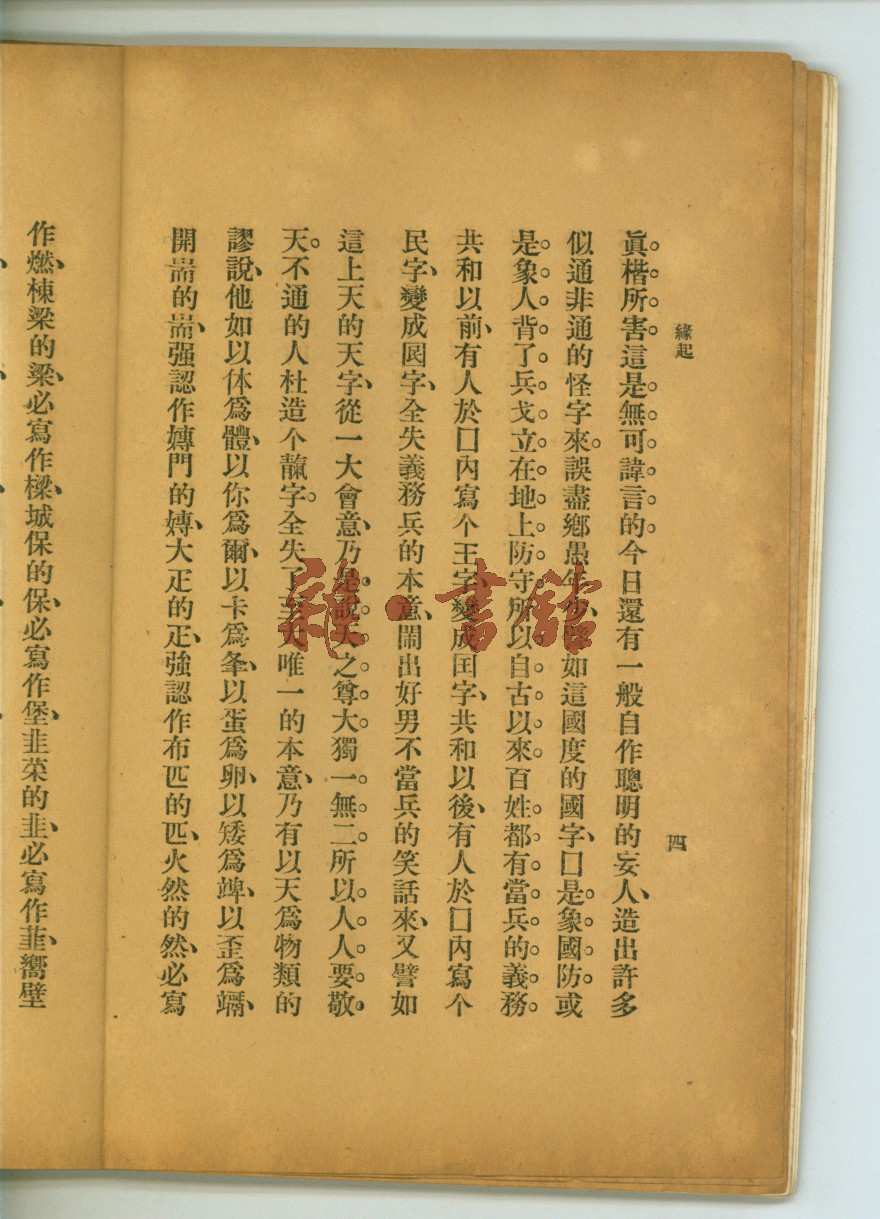 緣起
四
眞楷所害。這是無可諱言的。今日還有一般自作聰明的妄人、造出許多
似通非通的怪字來。誤盡鄉愚年少、譬如這國度的國字、囗是象國防。或
是象人背了兵戈立在地上防守。所以自古以來百姓都有當兵的義務。
共和以前、有人於囗內寫个王字、變成囯字、共和以後、有人於囗內寫个
民字、變成囻字、全失義務兵的本意、鬧出好男不當兵的笑話來、又譬如
這上天的天字、從一大會意、乃是說天之尊大獨一無二。所以人人要敬
天。不通的人杜造个靝字。全失了至大唯一的本意、乃有以天爲物類的
謬說、他如以体爲體、以你爲爾、以卡爲夅、以蛋爲卵、以矮爲婢、以歪爲竵、
開耑的耑、强認作專門的專、大疋的疋、強認作布匹的匹、火然的然、必寫
作燃、棟梁的梁、必寫作樑、城保的保、必寫作堡、韭菜的韭、必寫作韮、嚮壁
雜·書館